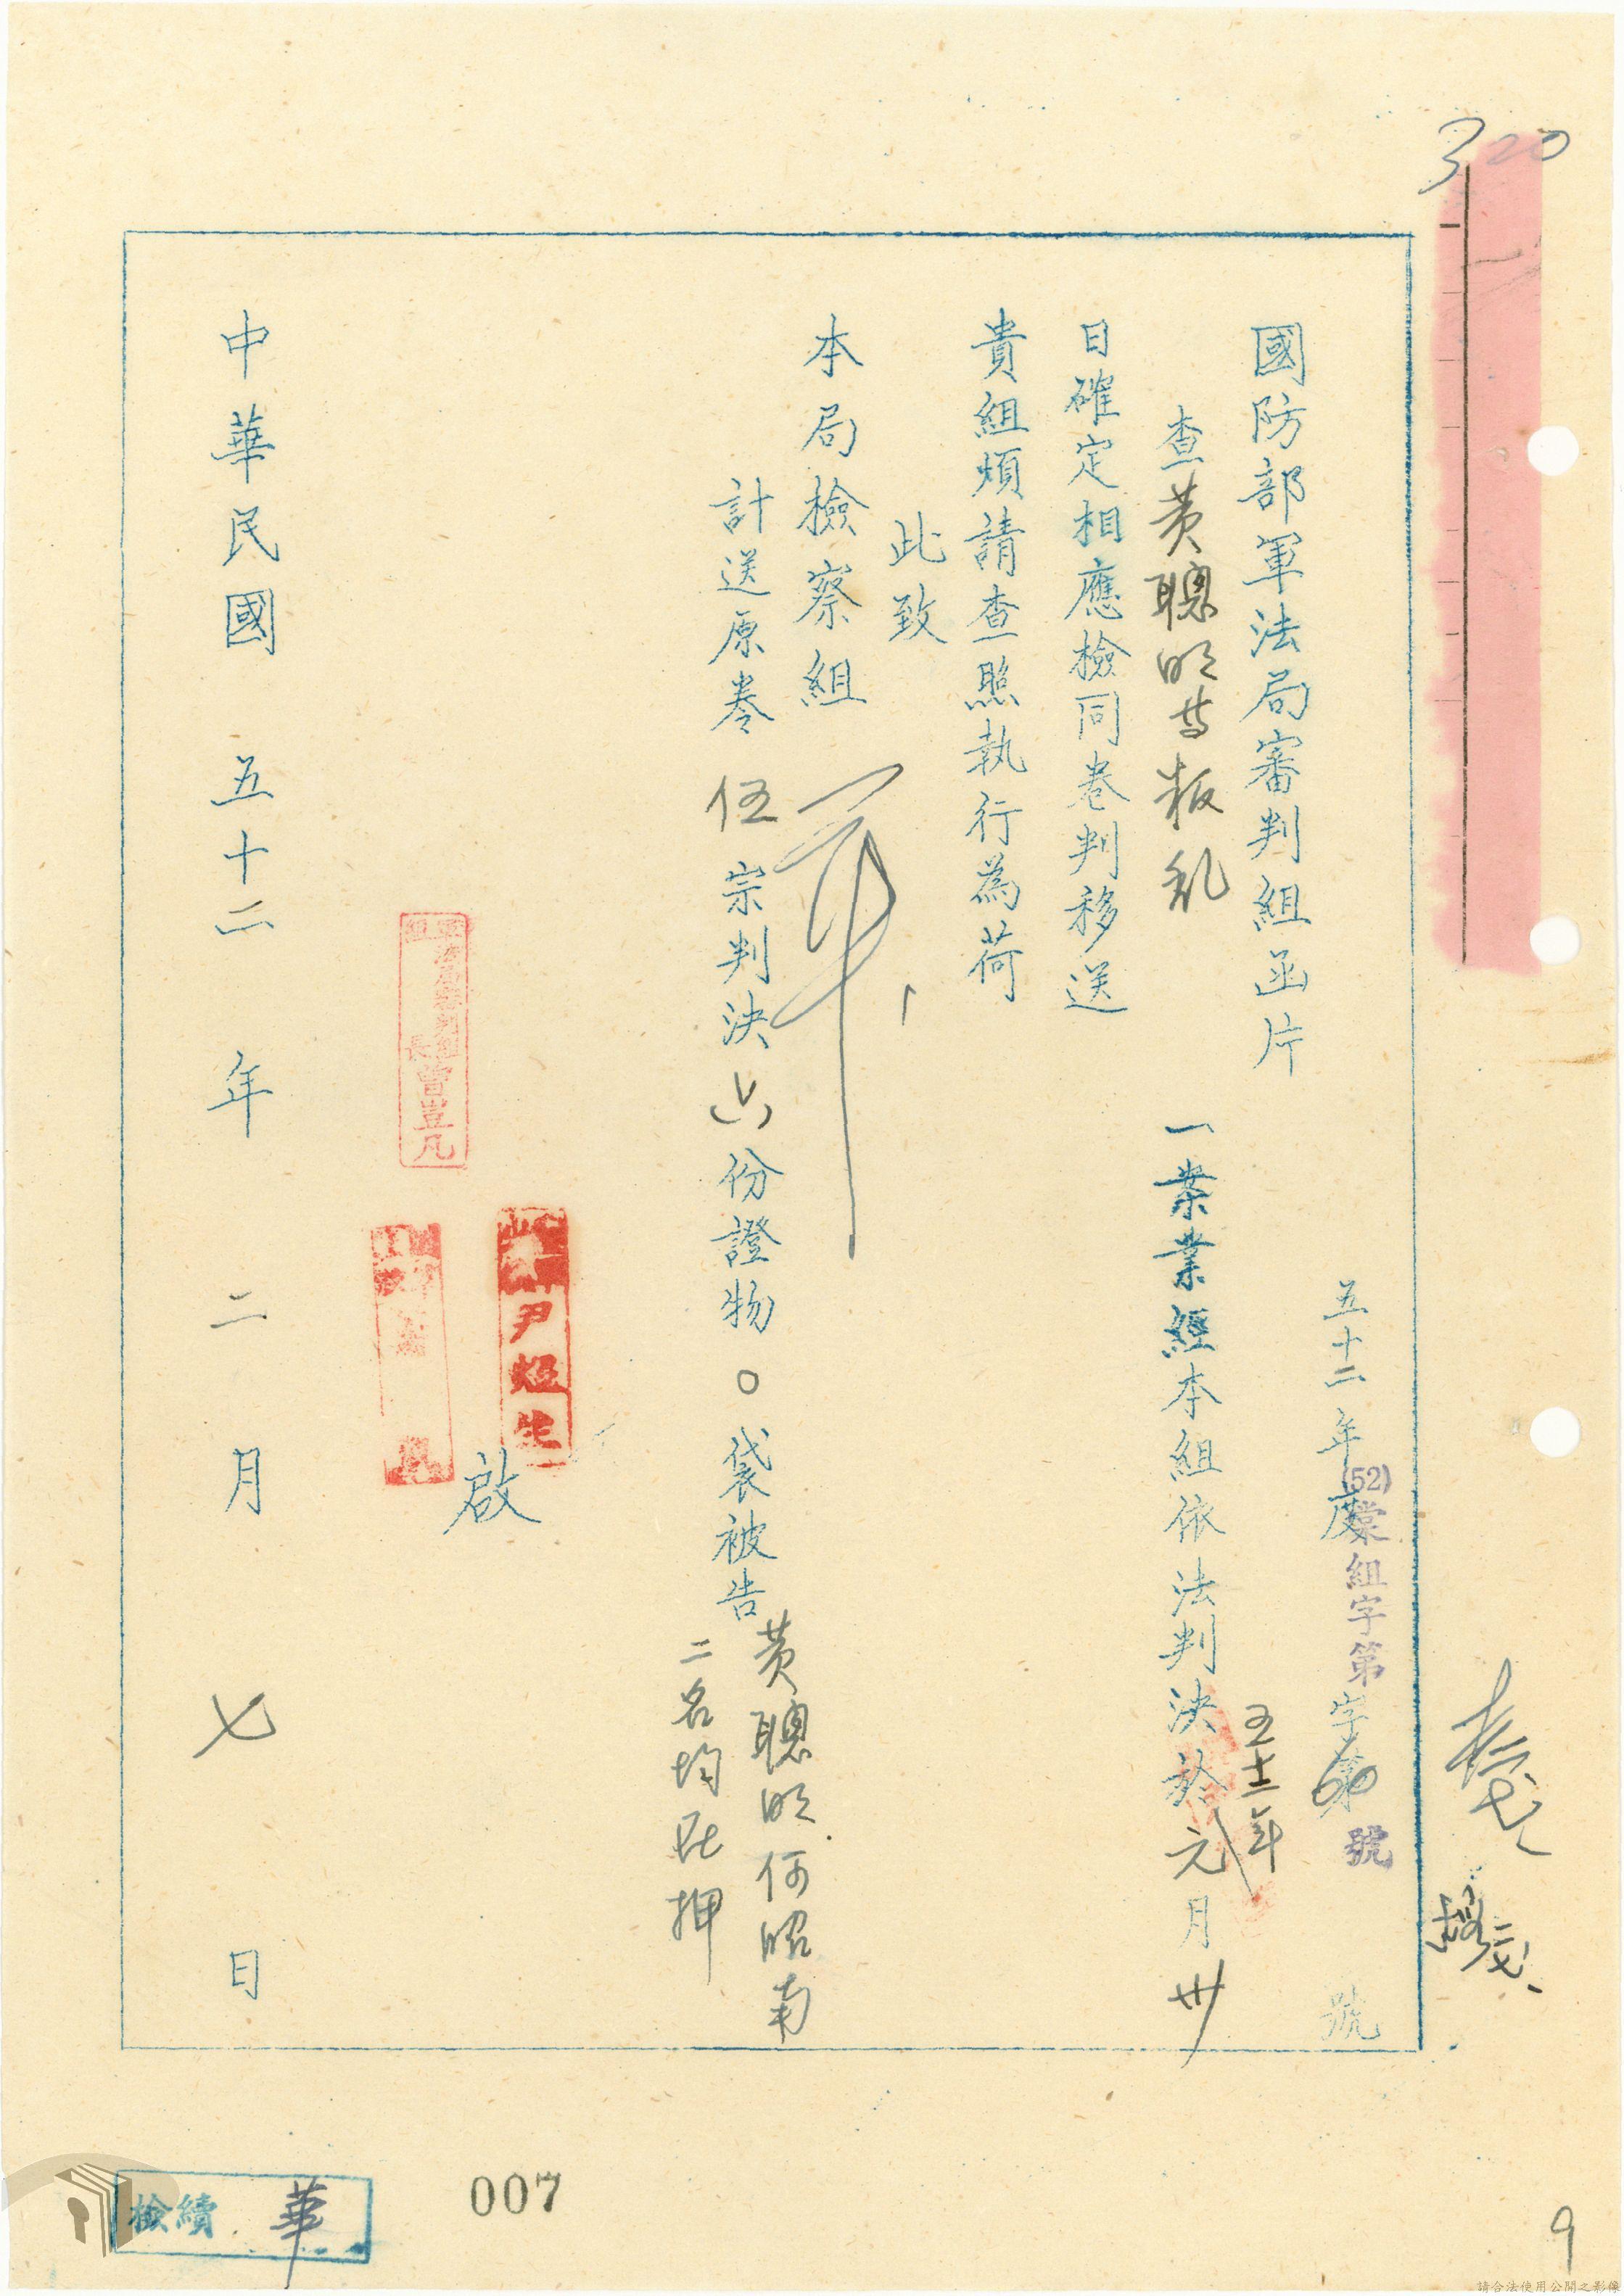 320
五十二年度 字第 號
(52)棠組字第60號
國防部軍法局審判組函片
查黃聰明等叛乱 一案業經本組依法判決於五十二年元月卅
日確定相應檢同卷判移送
貴組煩請查照執行為荷
此致
本局檢察組
計送原卷伍宗判決六份證物0袋被告黃聰明何昭南
二名均在押
尹焜生
軍法局審判組組長曹豈凡
啟
中華民國五十二年二月七日
檢續 華
007
9
請合法使用公開之影像